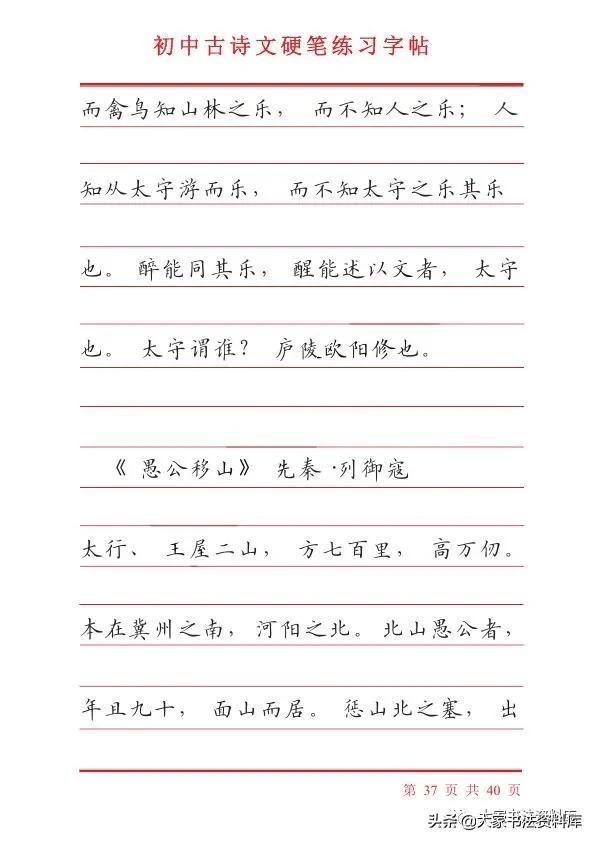 初中古诗文硬笔练习字帖
而禽鸟知山林之乐， 而不知人之乐； 人
知从太守游而乐， 而不知太守之乐其乐
也。 醉能同其乐， 醒能述以文者， 太守
也。 太守谓谁？ 庐陵欧阳修也。
《 愚公移山》 先秦·列御寇
太行、 王屋二山， 方七百里， 高万仞。
本在冀州之南， 河阳之北。 北山愚公者，
年且九十， 面山而居。 惩山北之塞， 出
第 37 页 共 40 页
大家书法资料库
头条@大家书法资料库